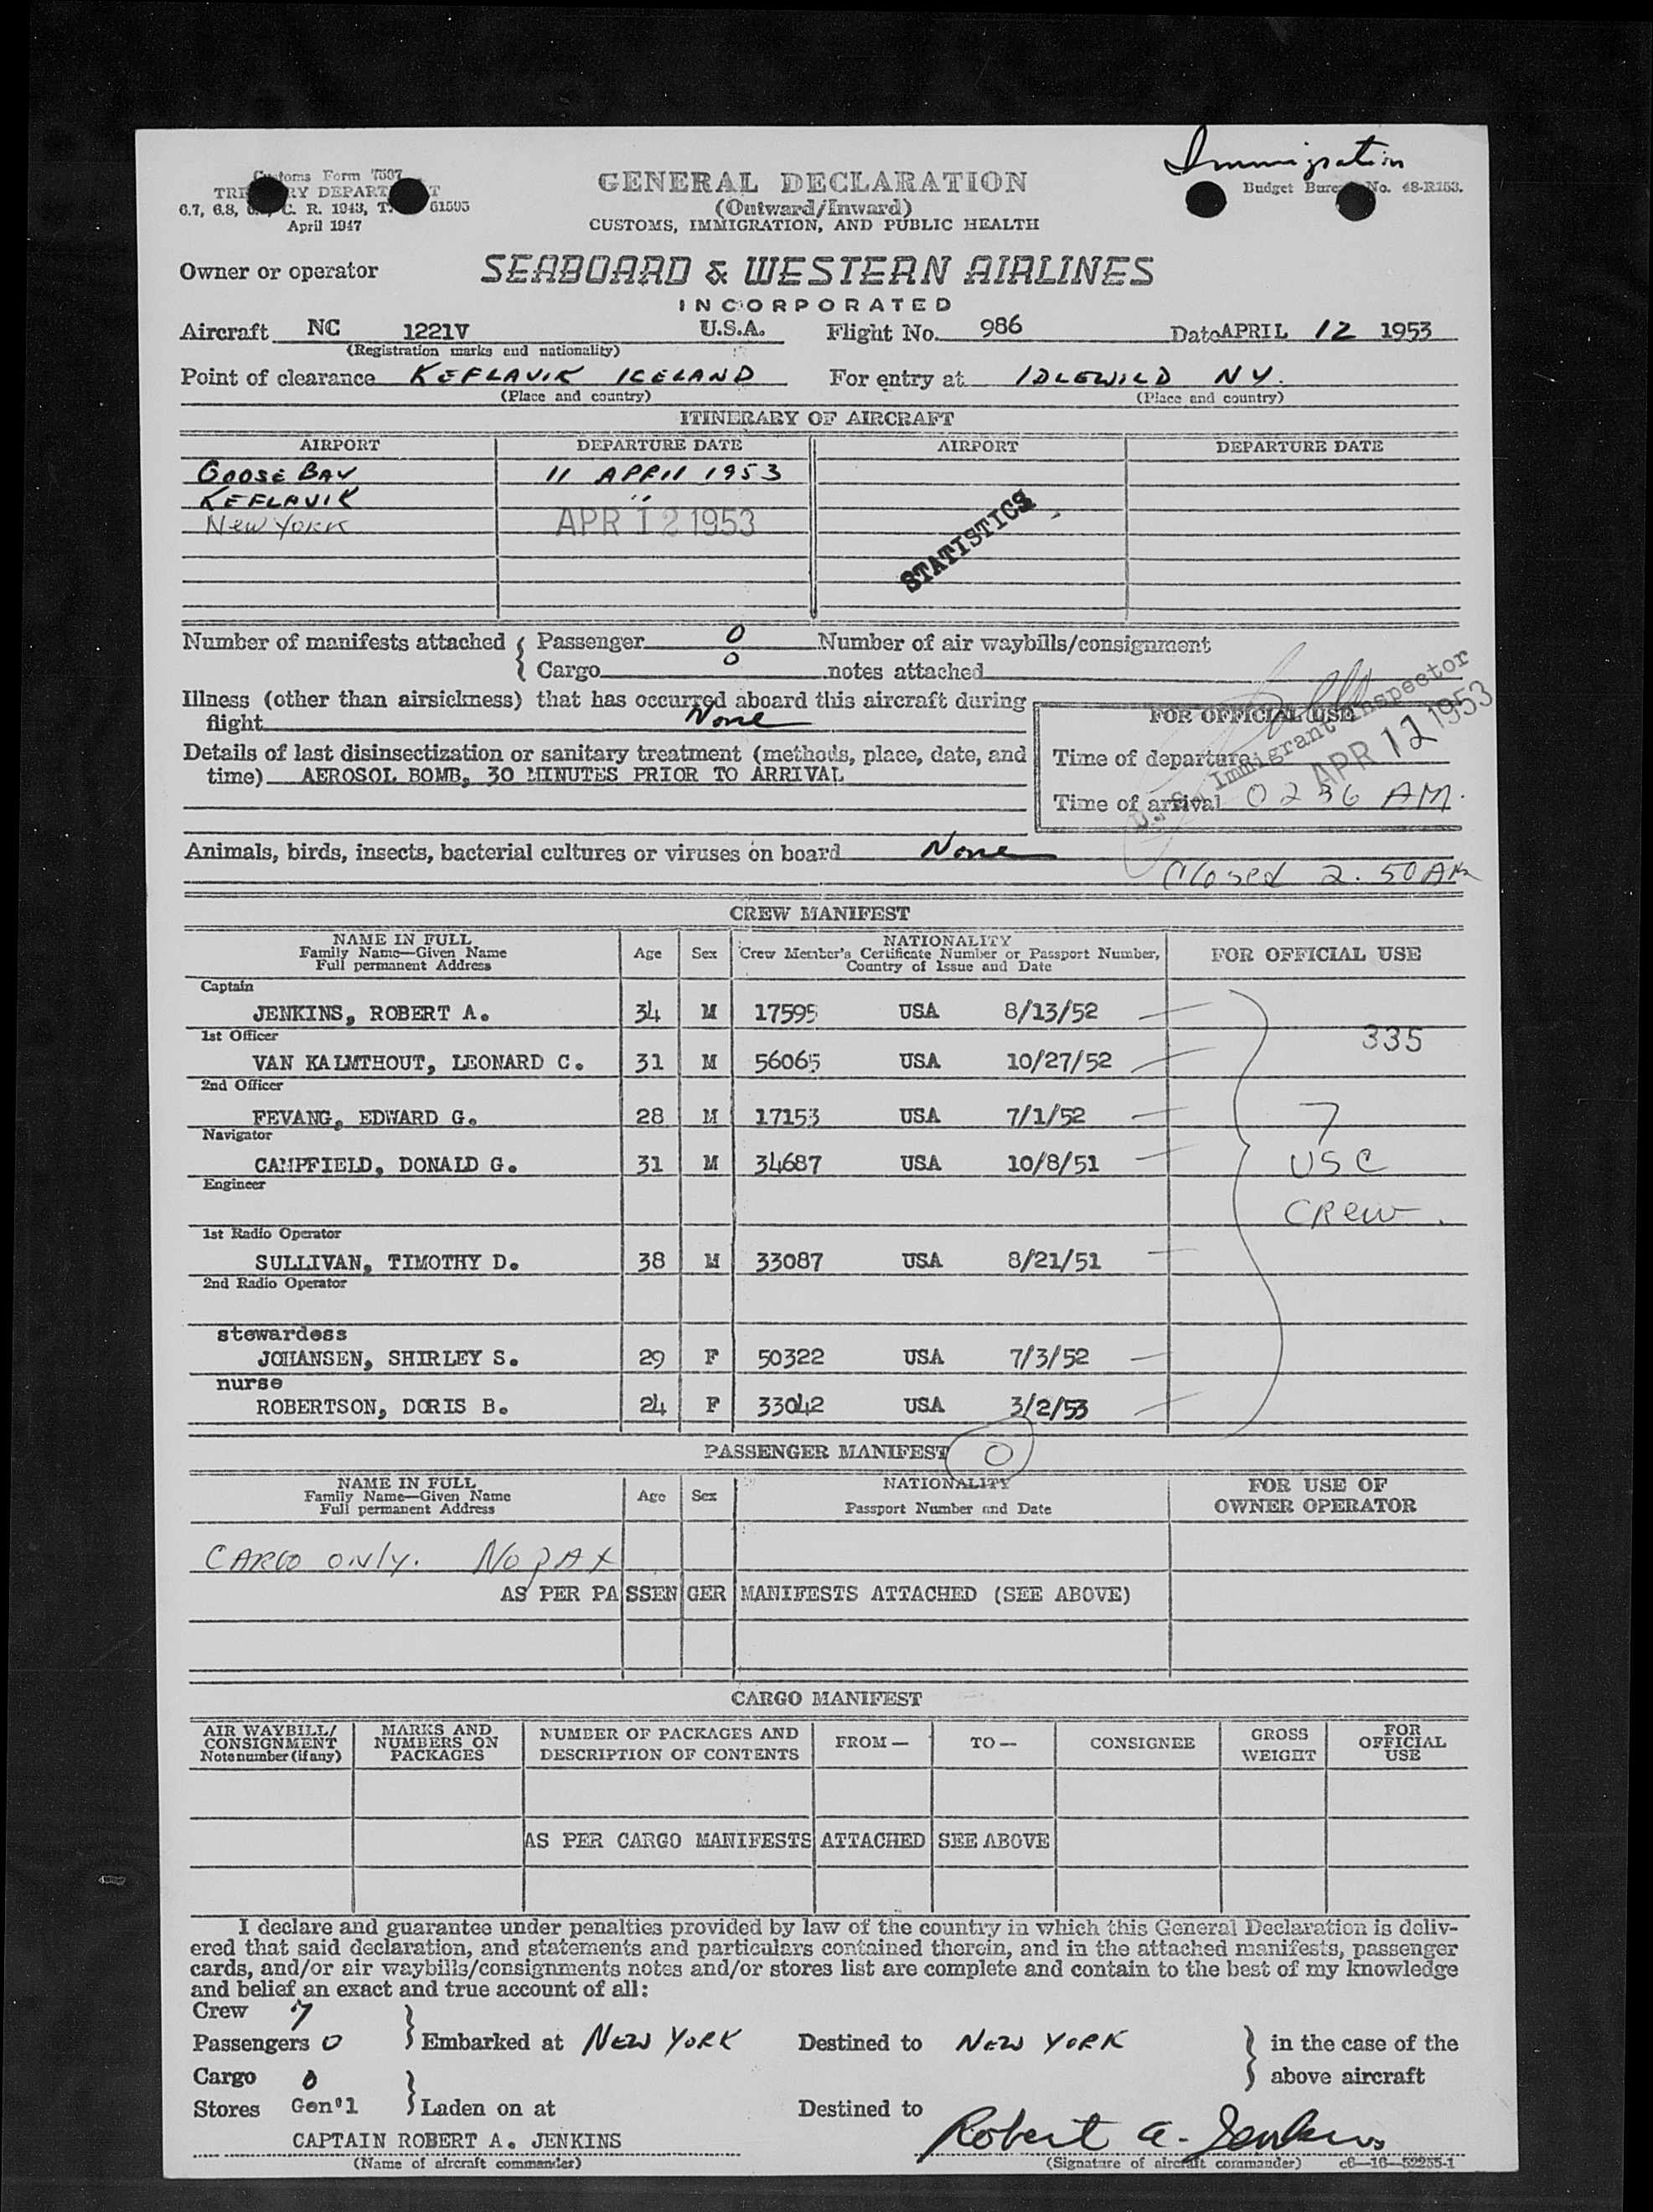 Immigration
Customs Form 7507
DEPART
6.7, 6.8, C. R. 1943, T. 61505
April 1947
GENERAL DECLARATION
(Outward/Inward)
CUSTOMS, IMMIGRATION, AND PUBLIC HEALTH
Budget No. 48-R153.
Owner or operator
SEABOARD & WESTERN AIRLINES
INCORPORATED
Aircraft NC 1221V U.S.A. Flight No. 986 Date APRIL 12 1953
(Registration marks and nationality)
Point of clearance KEFLAVIK ICELAND For entry at IDLEWILD NY.
(Place and country) (Place and country)
ITINERARY OF AIRCRAFT
AIRPORT DEPARTURE DATE AIRPORT DEPARTURE DATE
GOOSE BAY 11 APRIL 1953
KEFLAVIK "
New YORK APR 12 1953
STATISTICS
Number of manifests attached { Passenger 0 Number of air waybills/consignment
Cargo 0 notes attached
Illness (other than airsickness) that has occurred aboard this aircraft during
flight None
FOR OFFICIAL USE
U.S. Immigrant Inspector
APR 12 1953
Details of last disinsectization or sanitary treatment (methods, place, date, and
time) AEROSOL BOMB, 30 MINUTES PRIOR TO ARRIVAL
Time of departure
Time of arrival 0236 AM.
Animals, birds, insects, bacterial cultures or viruses on board None
Closed 2.50 AM
CREW MANIFEST
NAME IN FULL
Family Name—Given Name
Full permanent Address
Age Sex
NATIONALITY
Crew Member's Certificate Number or Passport Number,
Country of Issue and Date
FOR OFFICIAL USE
Captain
JENKINS, ROBERT A. 34 M 17595 USA 8/13/52
1st Officer
335
VAN KALMTHOUT, LEONARD C. 31 M 56065 USA 10/27/52
2nd Officer
FEVANG, EDWARD G. 28 M 17153 USA 7/1/52 7
Navigator
CAMPFIELD, DONALD G. 31 M 34687 USA 10/8/51 USC
Engineer
CREW.
1st Radio Operator
SULLIVAN, TIMOTHY D. 38 M 33087 USA 8/21/51
2nd Radio Operator
stewardess
JOHANSEN, SHIRLEY S. 29 F 50322 USA 7/3/52
nurse
ROBERTSON, DORIS B. 24 F 33042 USA 3/2/53
PASSENGER MANIFEST 0
NAME IN FULL
Family Name—Given Name
Full permanent Address
Age Sex
NATIONALITY
Passport Number and Date
FOR USE OF
OWNER OPERATOR
CARGO ONLY. NO PAX
AS PER PASSENGER MANIFESTS ATTACHED (SEE ABOVE)
CARGO MANIFEST
AIR WAYBILL/
CONSIGNMENT
Note number (if any)
MARKS AND
NUMBERS ON
PACKAGES
NUMBER OF PACKAGES AND
DESCRIPTION OF CONTENTS
FROM—
TO—
CONSIGNEE
GROSS
WEIGHT
FOR
OFFICIAL
USE
AS PER CARGO MANIFESTS ATTACHED SEE ABOVE
I declare and guarantee under penalties provided by law of the country in which this General Declaration is deliv-
ered that said declaration, and statements and particulars contained therein, and in the attached manifests, passenger
cards, and/or air waybills/consignments notes and/or stores list are complete and contain to the best of my knowledge
and belief an exact and true account of all:
Crew 7
Passengers 0 } Embarked at NEW YORK Destined to NEW YORK } in the case of the
Cargo 0 above aircraft
Stores Gen'l } Laden on at Destined to
CAPTAIN ROBERT A. JENKINS Robert A. Jenkins
(Name of aircraft commander) (Signature of aircraft commander) c6—16—52255-1